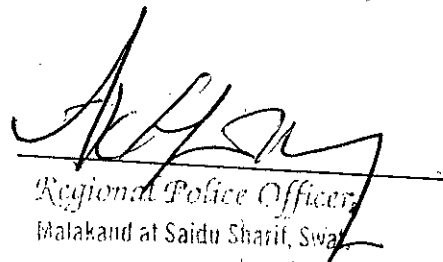 Regional Police Officer,
Malakand at Saidu Sharif, Swat.